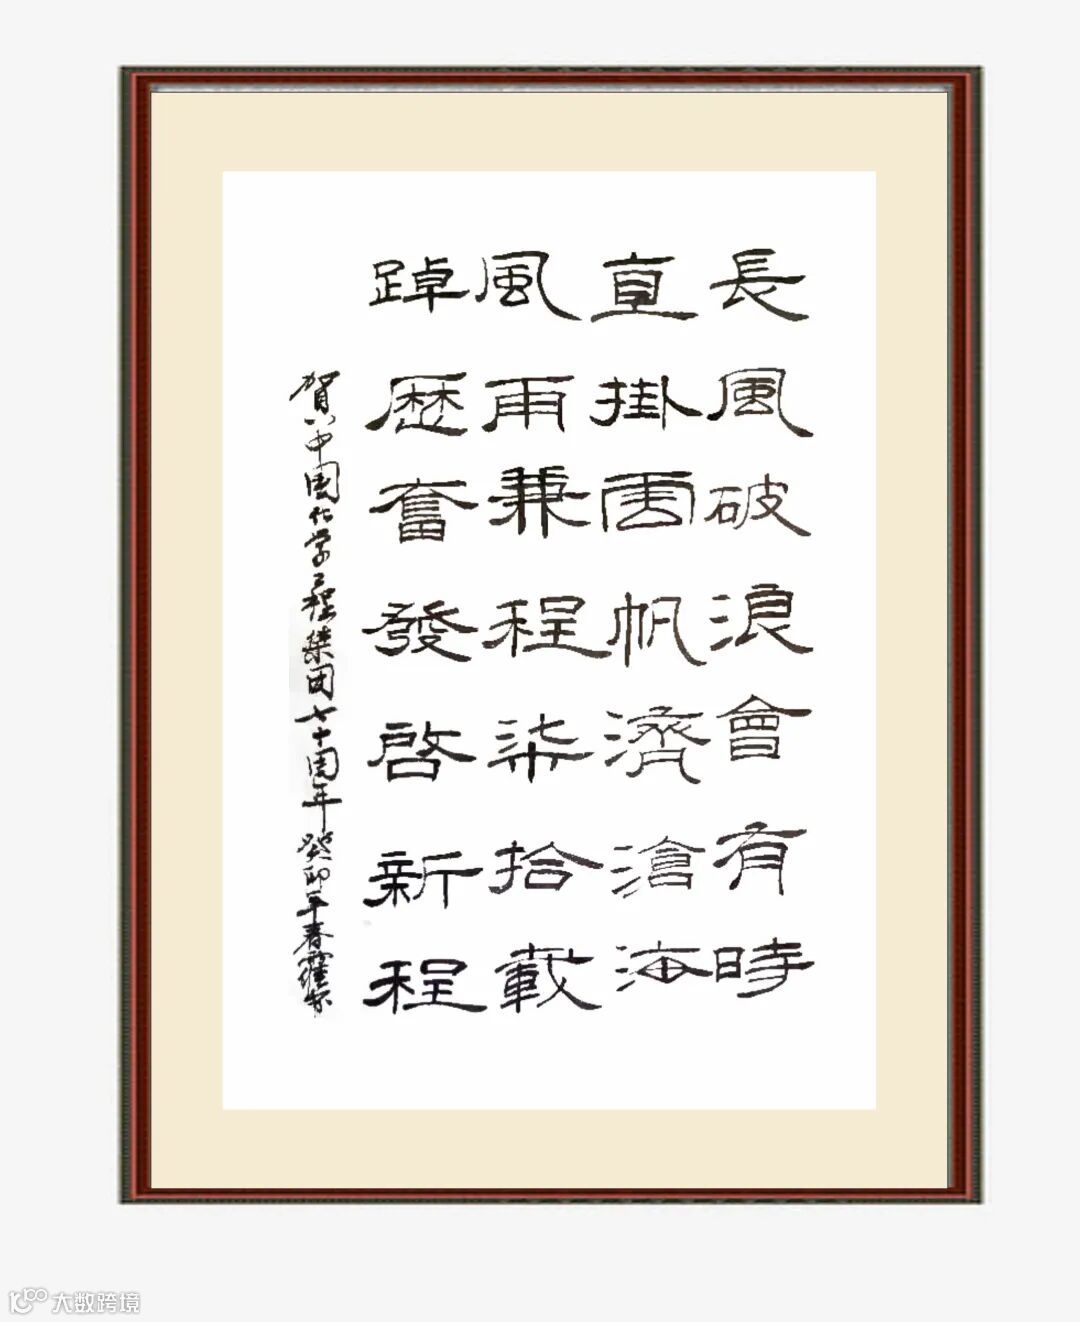 長風破浪會有時
直掛雲帆濟滄海
風雨兼程柒拾載
踔厲奮發啓新程
賀中國化学工程集团七十周年癸卯年春
大数跨境